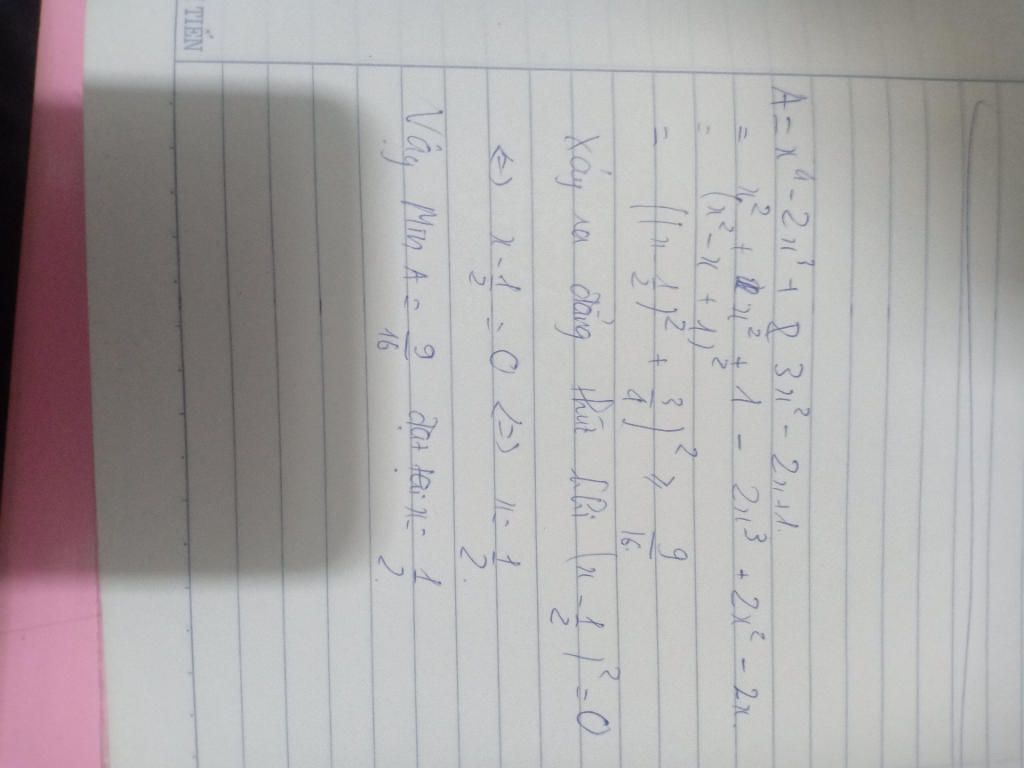 TIẾN
A = x⁴ - 2x³ + 3x² - 2x+1.
= x² + x² + 1 - 2x³ + 2x² - 2x.
= (x² - x + 1)²
= ((x 1/2)² + 3/4)² ≥ 9/16
Xảy ra đẳng thức khi (x - 1/2)² = 0
(=) x - 1/2 = 0 (=) x = 1/2.
Vậy Min A = 9/16 đạt tại x = 1/2.